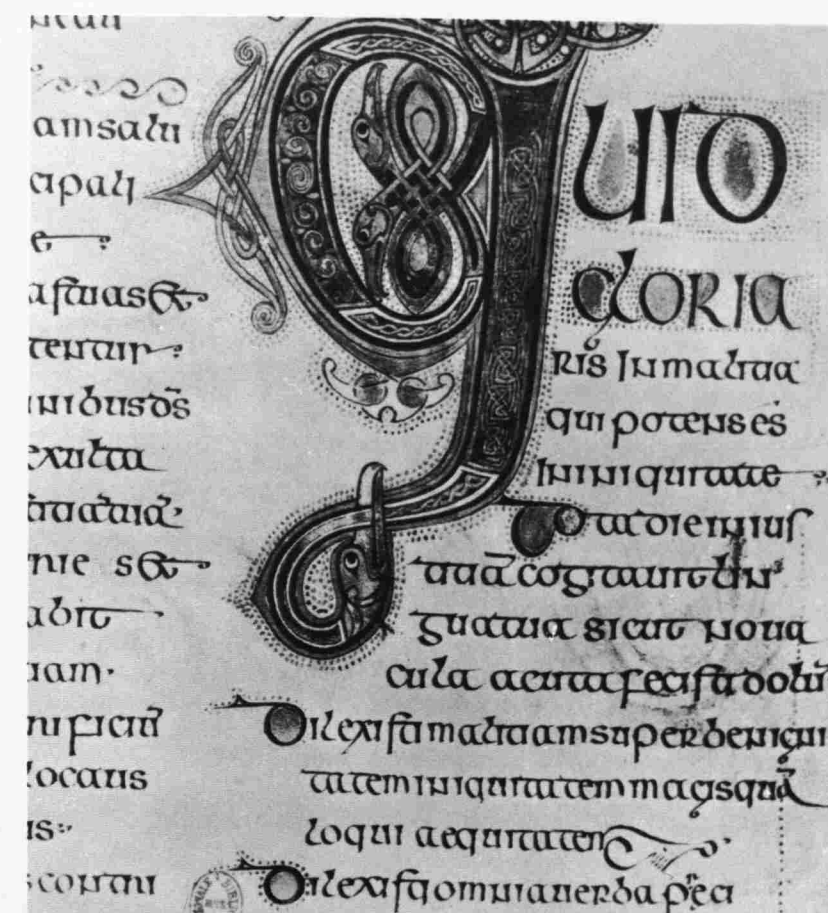 amsalu
cipali
e
as tuas &
inibus ds̄
exulta
abit
tiam
nificiū
locaus
is
contri
QUID
GLORIA
ris in malitia
qui potens es
in iniquitate
Tota die inius
titiā cogitauit lin
gua tua sicut noua
cula acuta fecisti dolū
Dilexisti malitiam super benigni
tatem iniquitatem magis quā
loqui aequitatem
Dilexisti omnia uerba